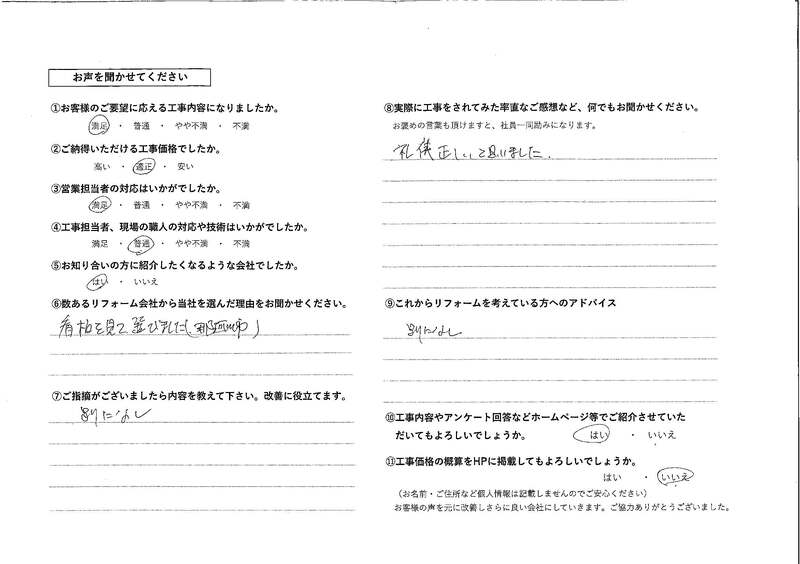 お声を聞かせてください
①お客様のご要望に応える工事内容になりましたか。
満足 ・ 普通 ・ やや不満 ・ 不満
②ご納得いただける工事価格でしたか。
高い ・ 適正 ・ 安い
③営業担当者の対応はいかがでしたか。
満足 ・ 普通 ・ やや不満 ・ 不満
④工事担当者、現場の職人の対応や技術はいかがでしたか。
満足 ・ 普通 ・ やや不満 ・ 不満
⑤お知り合いの方に紹介したくなるような会社でしたか。
はい ・ いいえ
⑥数あるリフォーム会社から当社を選んだ理由をお聞かせください。
看板を見て選びました
⑦ご指摘がございましたら内容を教えて下さい。改善に役立てます。
別になし
⑧実際に工事をされてみた率直なご感想など、何でもお聞かせください。
お褒めの言葉も頂けますと、社員一同励みになります。
礼儀正しいと思いました.
⑨これからリフォームを考えている方へのアドバイス
別になし
⑩工事内容やアンケート回答などホームページ等でご紹介させていた
だいてもよろしいでしょうか。 はい ・ いいえ
⑪工事価格の概算をHPに掲載してもよろしいでしょうか。
はい ・ いいえ
（お名前・ご住所など個人情報は記載しませんのでご安心ください）
お客様の声を元に改善しさらに良い会社にしていきます。ご協力ありがとうございました。